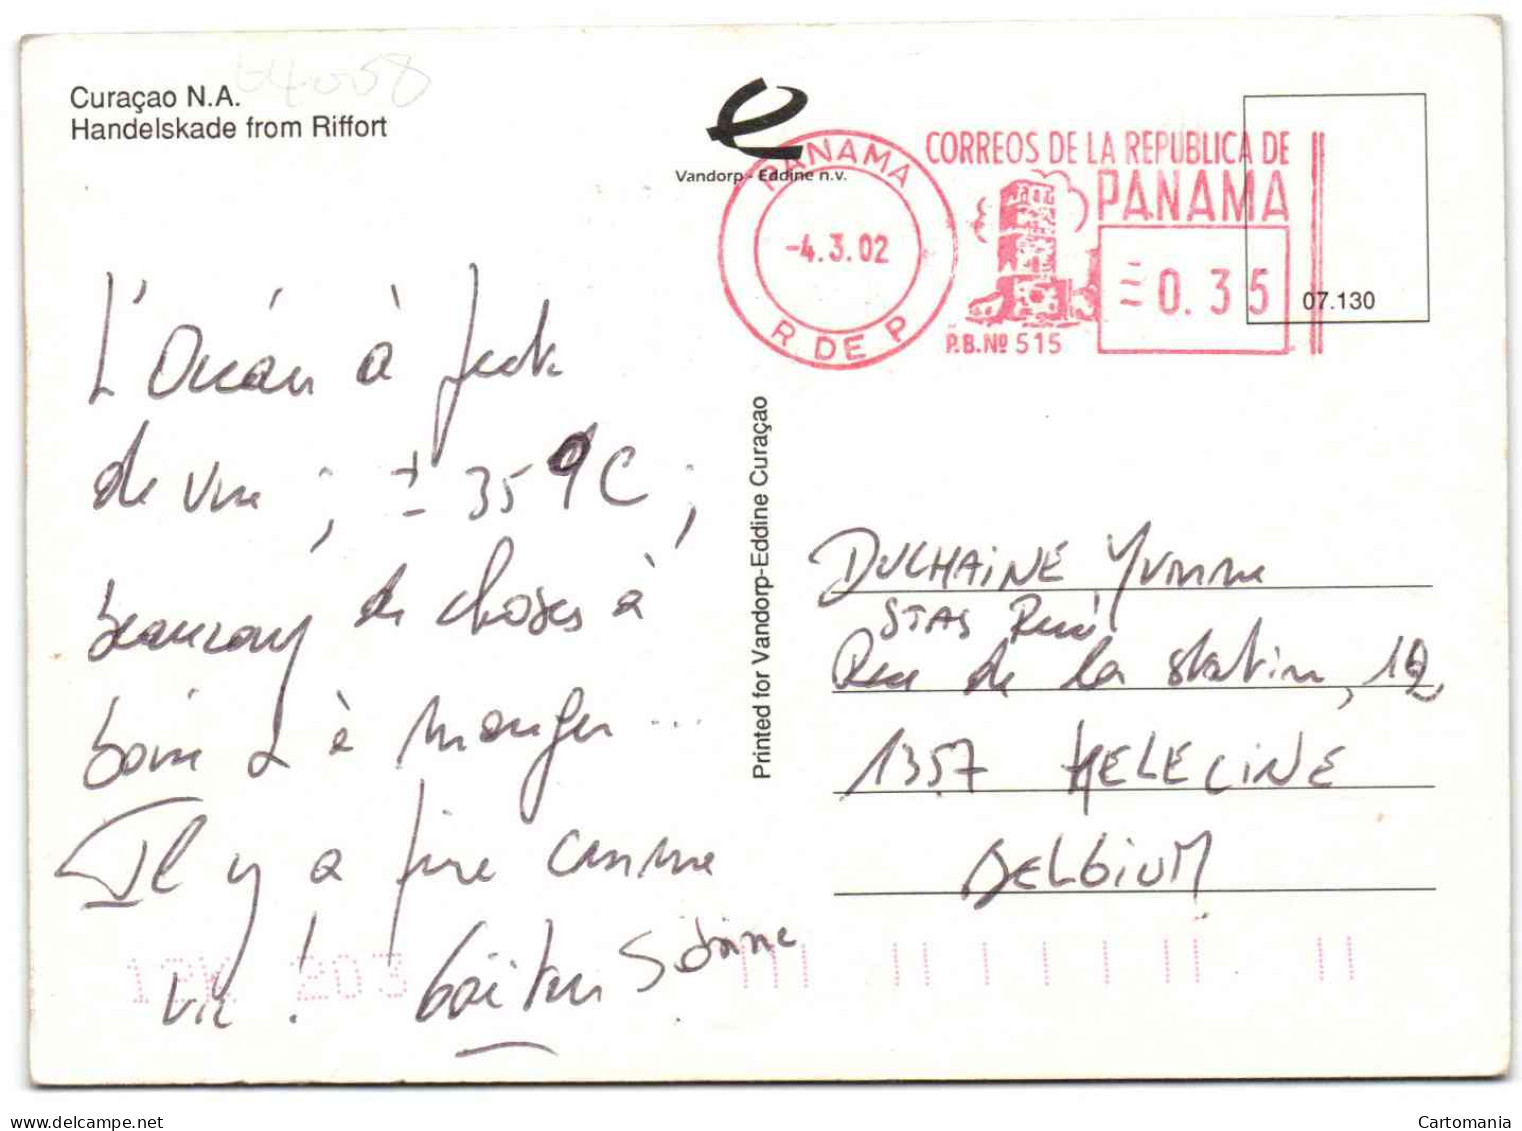 Curaçao N.A.
Handelskade from Riffort
64058
Vandorp - Eddine n.v.
PANAMA
-4.3.02
R DE P
CORREOS DE LA REPUBLICA DE
PANAMA
0.35
P.B.Nº 515
07.130
L'Océan à perte
de vue ; ± 35°C ;
beaucoup de choses à
boire & à manger ...
Il y a pire comme
vie ! Gaëtan Sabrina
Printed for Vandorp-Eddine Curaçao
DUCHAINE Yvonne
STAS René
Rue de la station, 12
1357 HELECINE
BELGIUM
203
delcampe.net
Cartomania